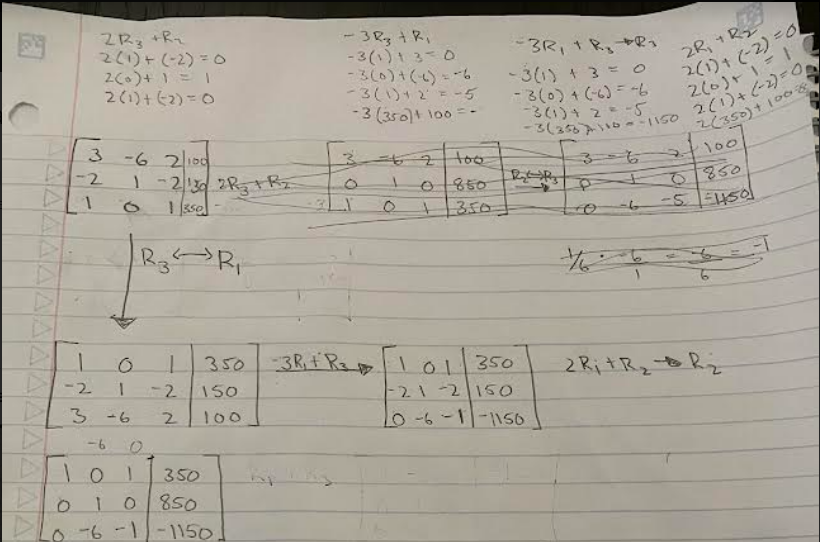 2R3 + R2
2(1) + (-2) = 0
2(0) + 1 = 1
2(1) + (-2) = 0
-3R3 + R1
-3(1) + 3 = 0
-3(0) + (-6) = -6
-3(1) + 2 = -5
-3(350) + 100 = -
-3R1 + R3 → R3
-3(1) + 3 = 0
-3(0) + (-6) = -6
-3(1) + 2 = -5
-3(350) + 100 = -1150
2R1 + R2
2(1) + (-2) = 0
2(0) + 1 = 1
2(1) + (-2) = 0
2(350) + 100
3 -6 2 | 100
-2 1 -2 |
1 0 1 | 350
2R3 + R2
3 -6 2 | 100
0 1 0 | 850
-3 1 0 1 | 350
R2 ↔ R3
3 -6 2 | 100
0 1 0 | 850
0 -6 -5 | -1150
R3 ↔ R1
1/6 · -6/1 = -6/6 = -1
1 0 1 | 350
-2 1 -2 | 150
3 -6 2 | 100
-3R1 + R3 →
1 0 1 | 350
-2 1 -2 | 150
0 -6 -1 | -1150
2R1 + R2 → R2
-6 0
1 0 1 | 350
0 1 0 | 850
0 -6 -1 | -1150